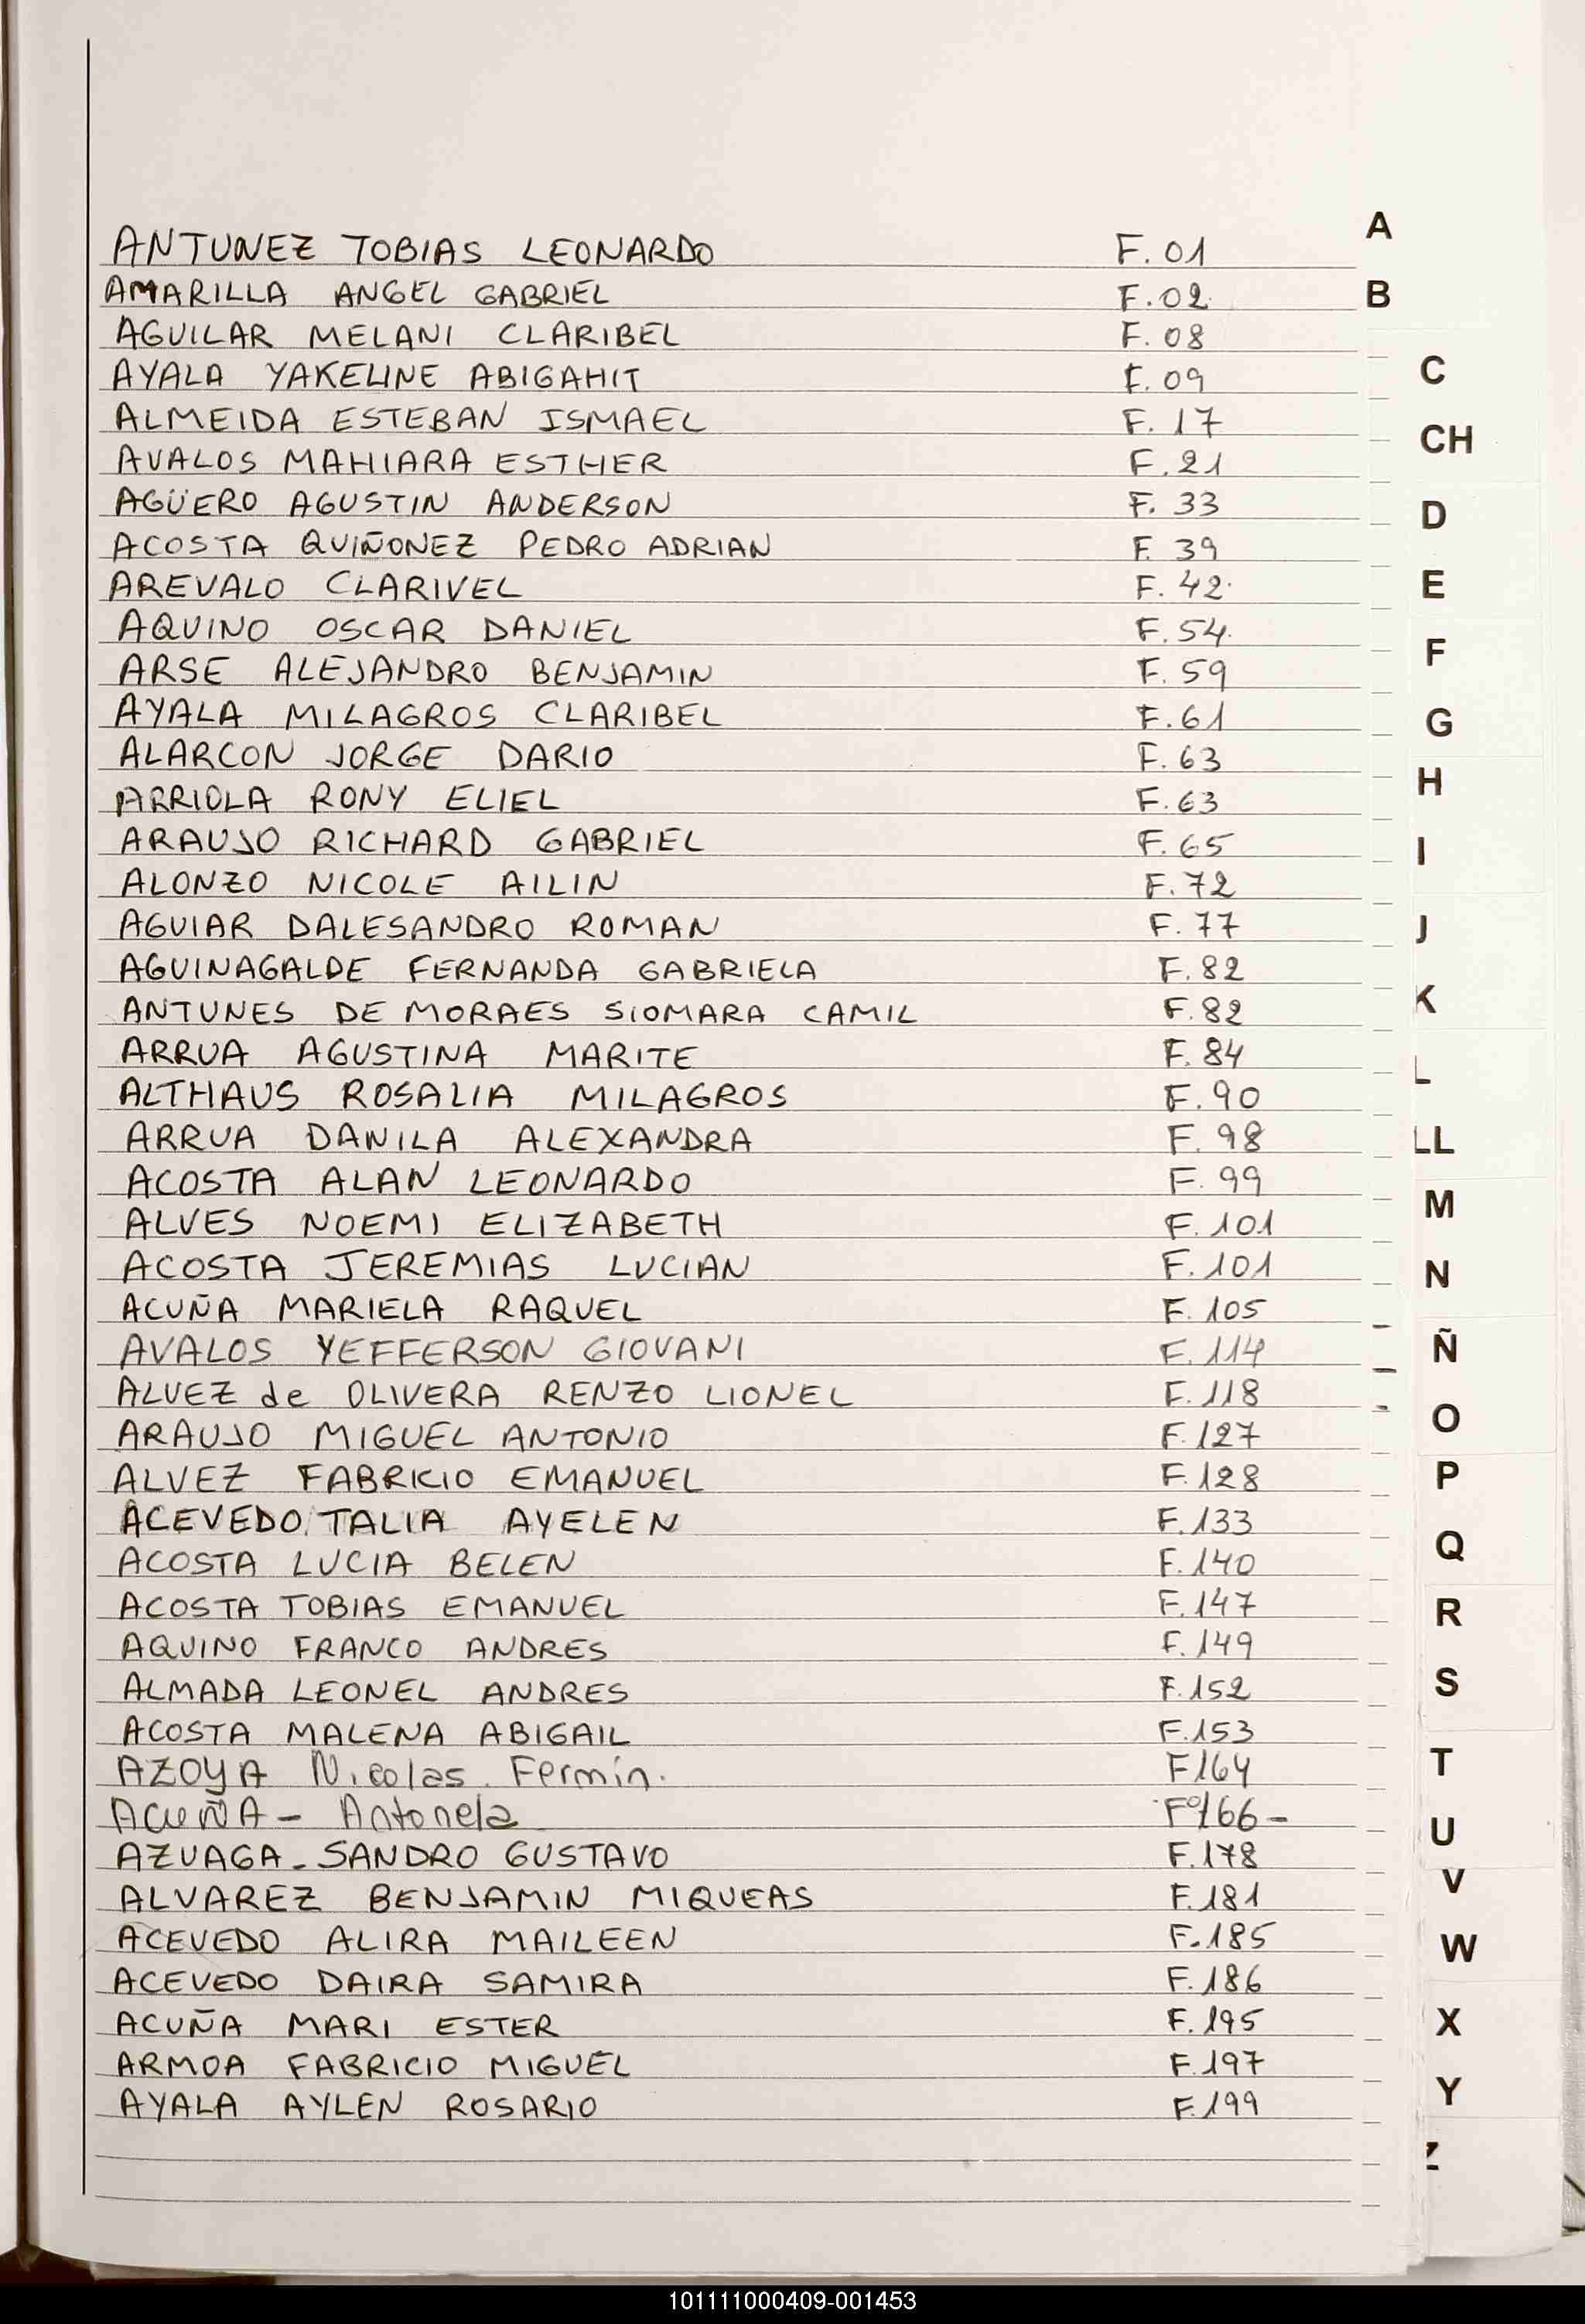 ANTUNEZ TOBIAS LEONARDO F. 01
AMARILLA ANGEL GABRIEL F. 02
AGUILAR MELANI CLARIBEL F. 08
AYALA YAKELINE ABIGAHIT F. 09
ALMEIDA ESTEBAN ISMAEL F. 17
AVALOS MAHIARA ESTHER F. 21
AGÜERO AGUSTIN ANDERSON F. 33
ACOSTA QUIÑONEZ PEDRO ADRIAN F. 39
AREVALO CLARIVEL F. 42.
AQUINO OSCAR DANIEL F. 54.
ARSE ALEJANDRO BENJAMIN F. 59
AYALA MILAGROS CLARIBEL F. 61
ALARCON JORGE DARIO F. 63
ARRIOLA RONY ELIEL F. 63
ARAUJO RICHARD GABRIEL F. 65
ALONZO NICOLE AILIN F. 72
AGUIAR DALESANDRO ROMAN F. 77
AGUINAGALDE FERNANDA GABRIELA F. 82
ANTUNES DE MORAES SIOMARA CAMIL F. 82
ARRUA AGUSTINA MARITE F. 84
ALTHAUS ROSALIA MILAGROS F. 90
ARRUA DANILA ALEXANDRA F. 98
ACOSTA ALAN LEONARDO F. 99
ALVES NOEMI ELIZABETH F. 101
ACOSTA JEREMIAS LUCIAN F. 101
ACUÑA MARIELA RAQUEL F. 105
AVALOS YEFFERSON GIOVANI F. 114
ALVEZ de OLIVERA RENZO LIONEL F. 118
ARAUJO MIGUEL ANTONIO F. 127
ALVEZ FABRICIO EMANUEL F. 128
ACEVEDO TALIA AYELEN F. 133
ACOSTA LUCIA BELEN F. 140
ACOSTA TOBIAS EMANUEL F. 147
AQUINO FRANCO ANDRES F. 149
ALMADA LEONEL ANDRES F. 152
ACOSTA MALENA ABIGAIL F. 153
AZOYA Nicolas Fermín. F 164
ACUÑA - Antonela Fº 166 -
AZUAGA - SANDRO GUSTAVO F. 178
ALVAREZ BENJAMIN MIQUEAS F. 181
ACEVEDO ALIRA MAILEEN F. 185
ACEVEDO DAIRA SAMIRA F. 186
ACUÑA MARI ESTER F. 195
ARMOA FABRICIO MIGUEL F. 197
AYALA AYLEN ROSARIO F. 199
A
B
C
CH
D
E
F
G
H
I
J
K
L
LL
M
N
Ñ
O
P
Q
R
S
T
U
V
W
X
Y
Z
101111000409-001453